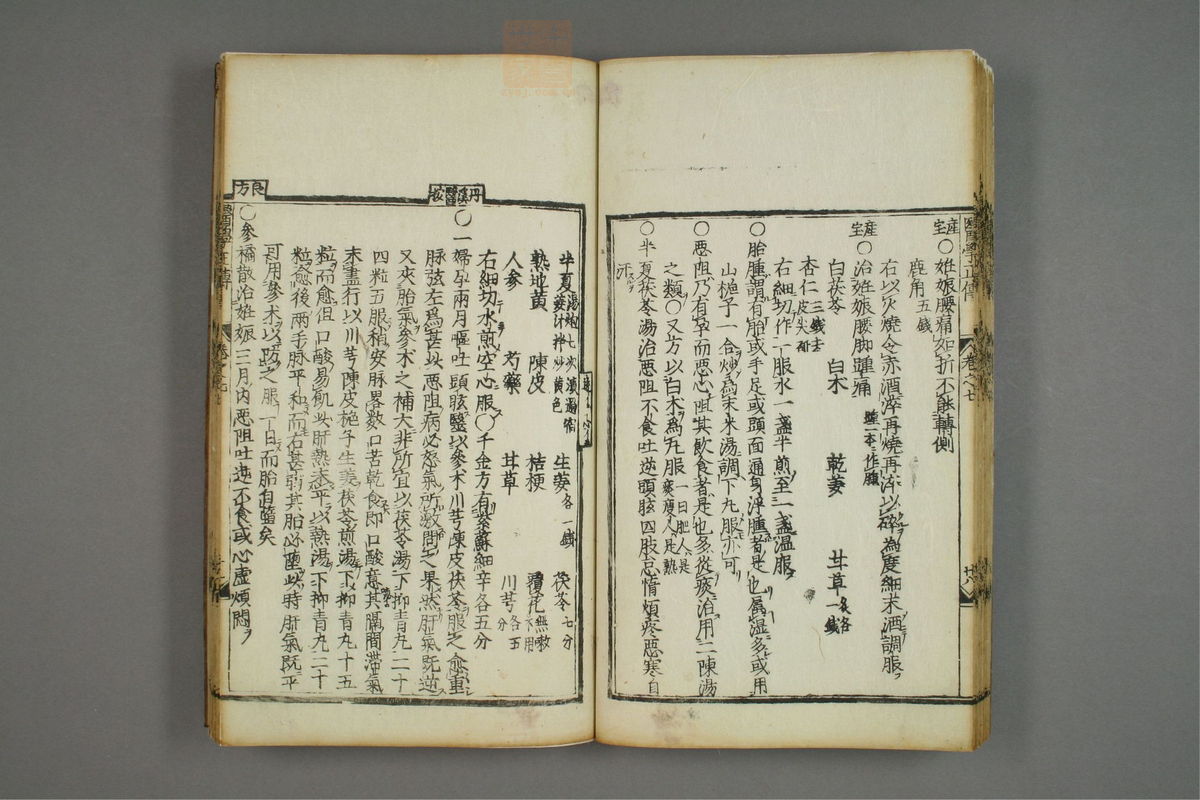 醫學正傳 卷之七
産宝
○妊娠腰痛如折不能轉側
鹿角五錢
右以火燒令赤酒淬再燒再淬以碎為度細末酒調服
産宝
○治妊娠腰脚踵痛
踵一本ニ作腫
白茯苓 白木 乾姜 甘草 各一錢
杏仁 三錢去皮尖
右細切作一服水一盞半煎至一盞温服
○胎腫謂有胎或手足或頭面通身浮腫者是也属湿多或用
山梔子一合炒為末米湯調下丸服亦可
○惡阻乃有孕而惡心阻其飲食者是也多從痰治用二陳湯
之類○又方以白木為丸服 一日肥人是痰瘦人是熱
○半夏茯苓湯治惡阻不食吐逆頭眩四肢怠惰煩疼惡寒自
汗
半夏 湯炮七次 姜汁拌炒黄色 生姜 各一錢 茯苓 七分
熟地黄 陳皮 桔梗 覆花 無嗽不用
人参 芍藥 甘草 川芎 各五分
右細切水煎空心服○千金方有紫蘓細辛各五分
丹溪醫按
○一婦孕兩月嘔吐頭眩醫以參术川芎陳皮茯苓服之愈重
脉弦左為甚此惡阻病必怒氣所激問之果然肝氣既逆
又夾胎氣參术之補大非所宜以茯苓湯下抑青丸二十
四粒五服稍安脉畧數口苦乾食即口酸意其膈間滞氣
未盡行以川芎陳皮梔子生姜茯苓煎湯下抑青丸十五
粒而愈但口酸易飢此肝熱未平以熱湯下抑青丸二十
粒愈後兩手脉平和而右甚弱其胎必墮此時肝氣既平
可用參术以防之服一月而胎自固矣
良方
○參橘散治妊娠三月内惡阻吐逆不食或心虚煩悶
醫學正傳